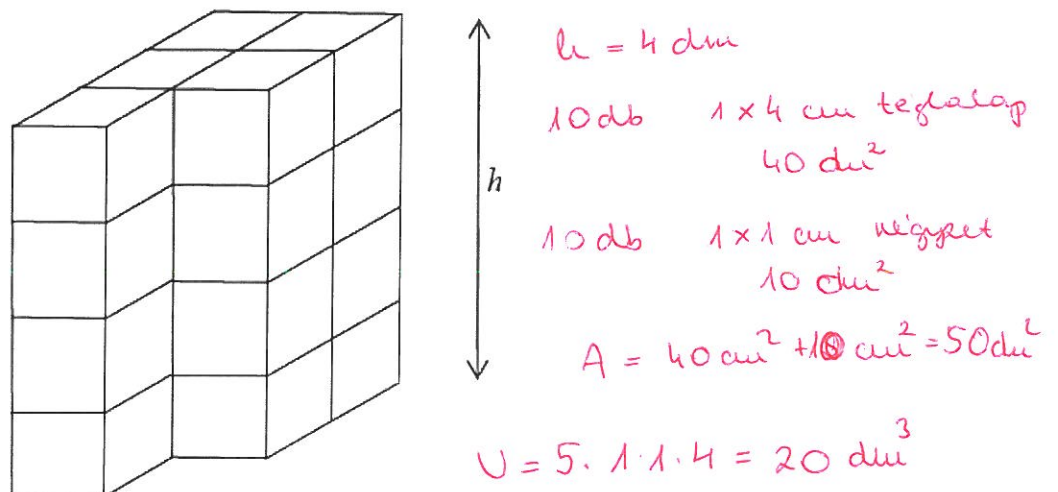 h
h = 4 dm
10 db 1 × 4 cm téglalap
40 dm²
10 db 1 × 1 cm négyzet
10 dm²
A = 40 cm² + 10 cm² = 50 dm²
V = 5 · 1 · 1 · 4 = 20 dm³